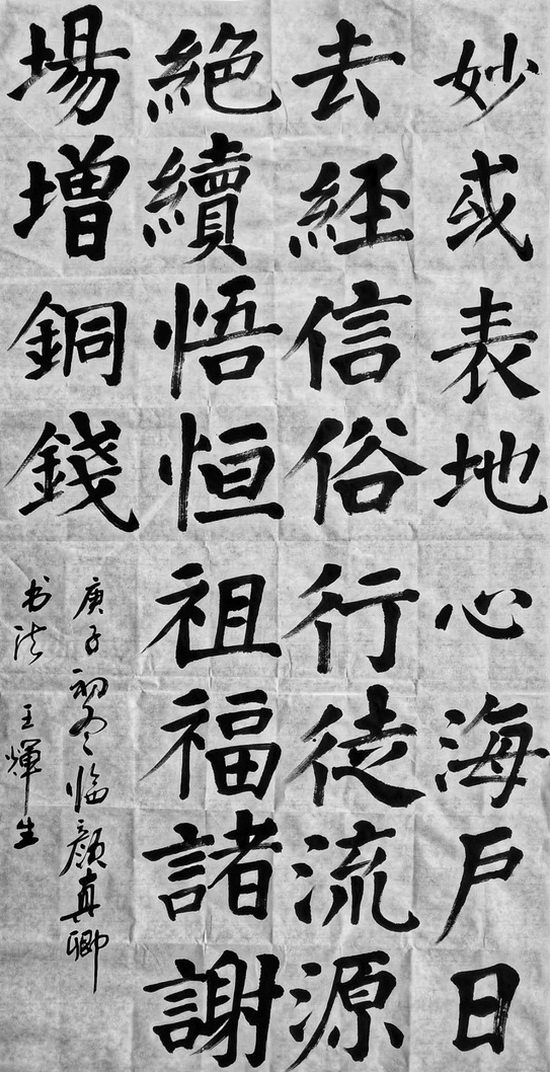 妙或表地心海戶日
去經信俗行徒流源
絕續悟恒祖福諸謝
場增銅錢
庚子初冬临顏真卿
书法 王輝生